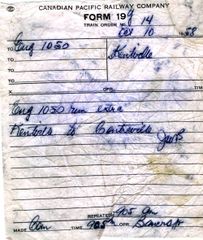 CANADIAN PACIFIC RAILWAY COMPANY
FORM 19
TRAIN ORDER NO. 14
Oct 10 58
TO Eng 1050 Kentville
TO
X OPR. M
Eng 1050 run extra
Kentville to Centreville
REPEATED 905 am
MADE Com 905 am OPR. Bancroft